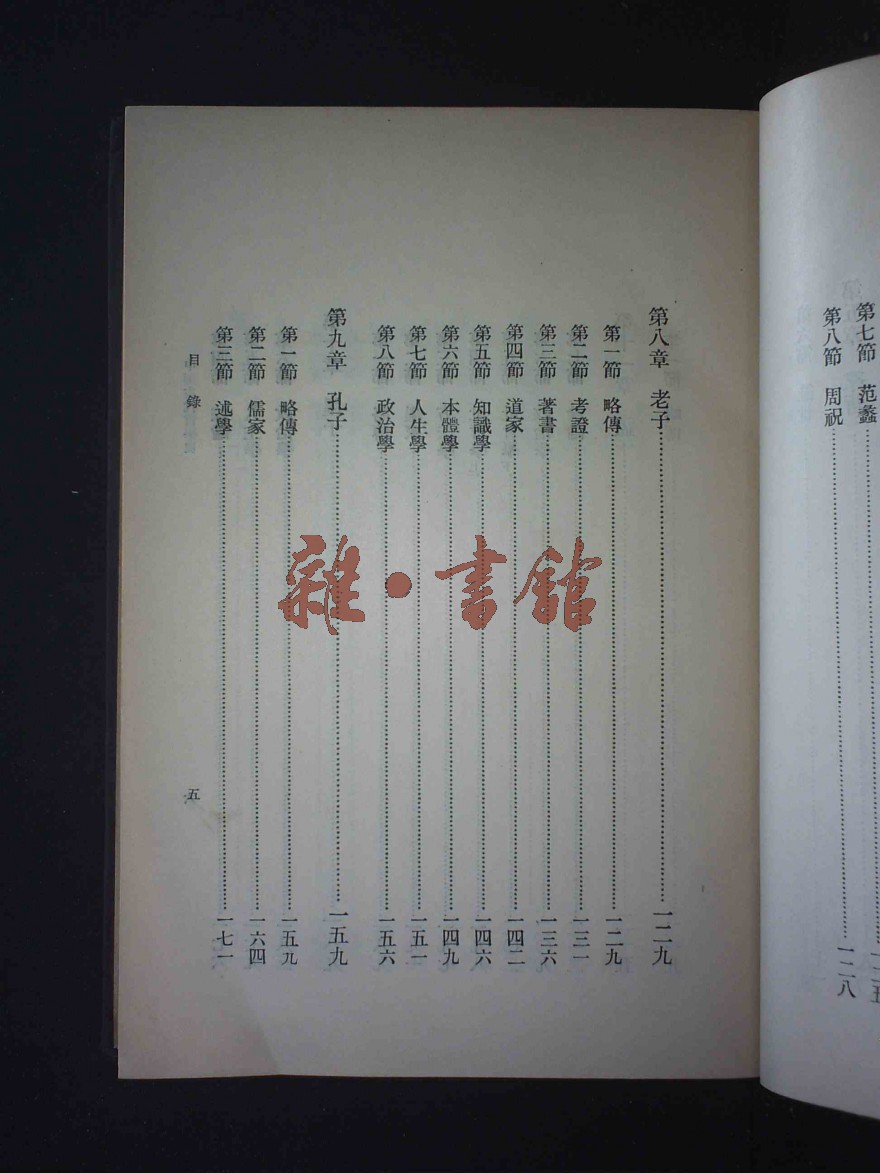 第七節 范蠡
第八節 周祝……一二八
第八章 老子……一二九
第一節 略傳……一二九
第二節 考證……一三一
第三節 著書……一三六
第四節 道家……一四二
第五節 知識學……一四六
第六節 本體學……一四九
第七節 人生學……一五一
第八節 政治學……一五六
第九章 孔子……一五九
第一節 略傳……一五九
第二節 儒家……一六四
第三節 述學……一七一
目錄
五
雜·書館